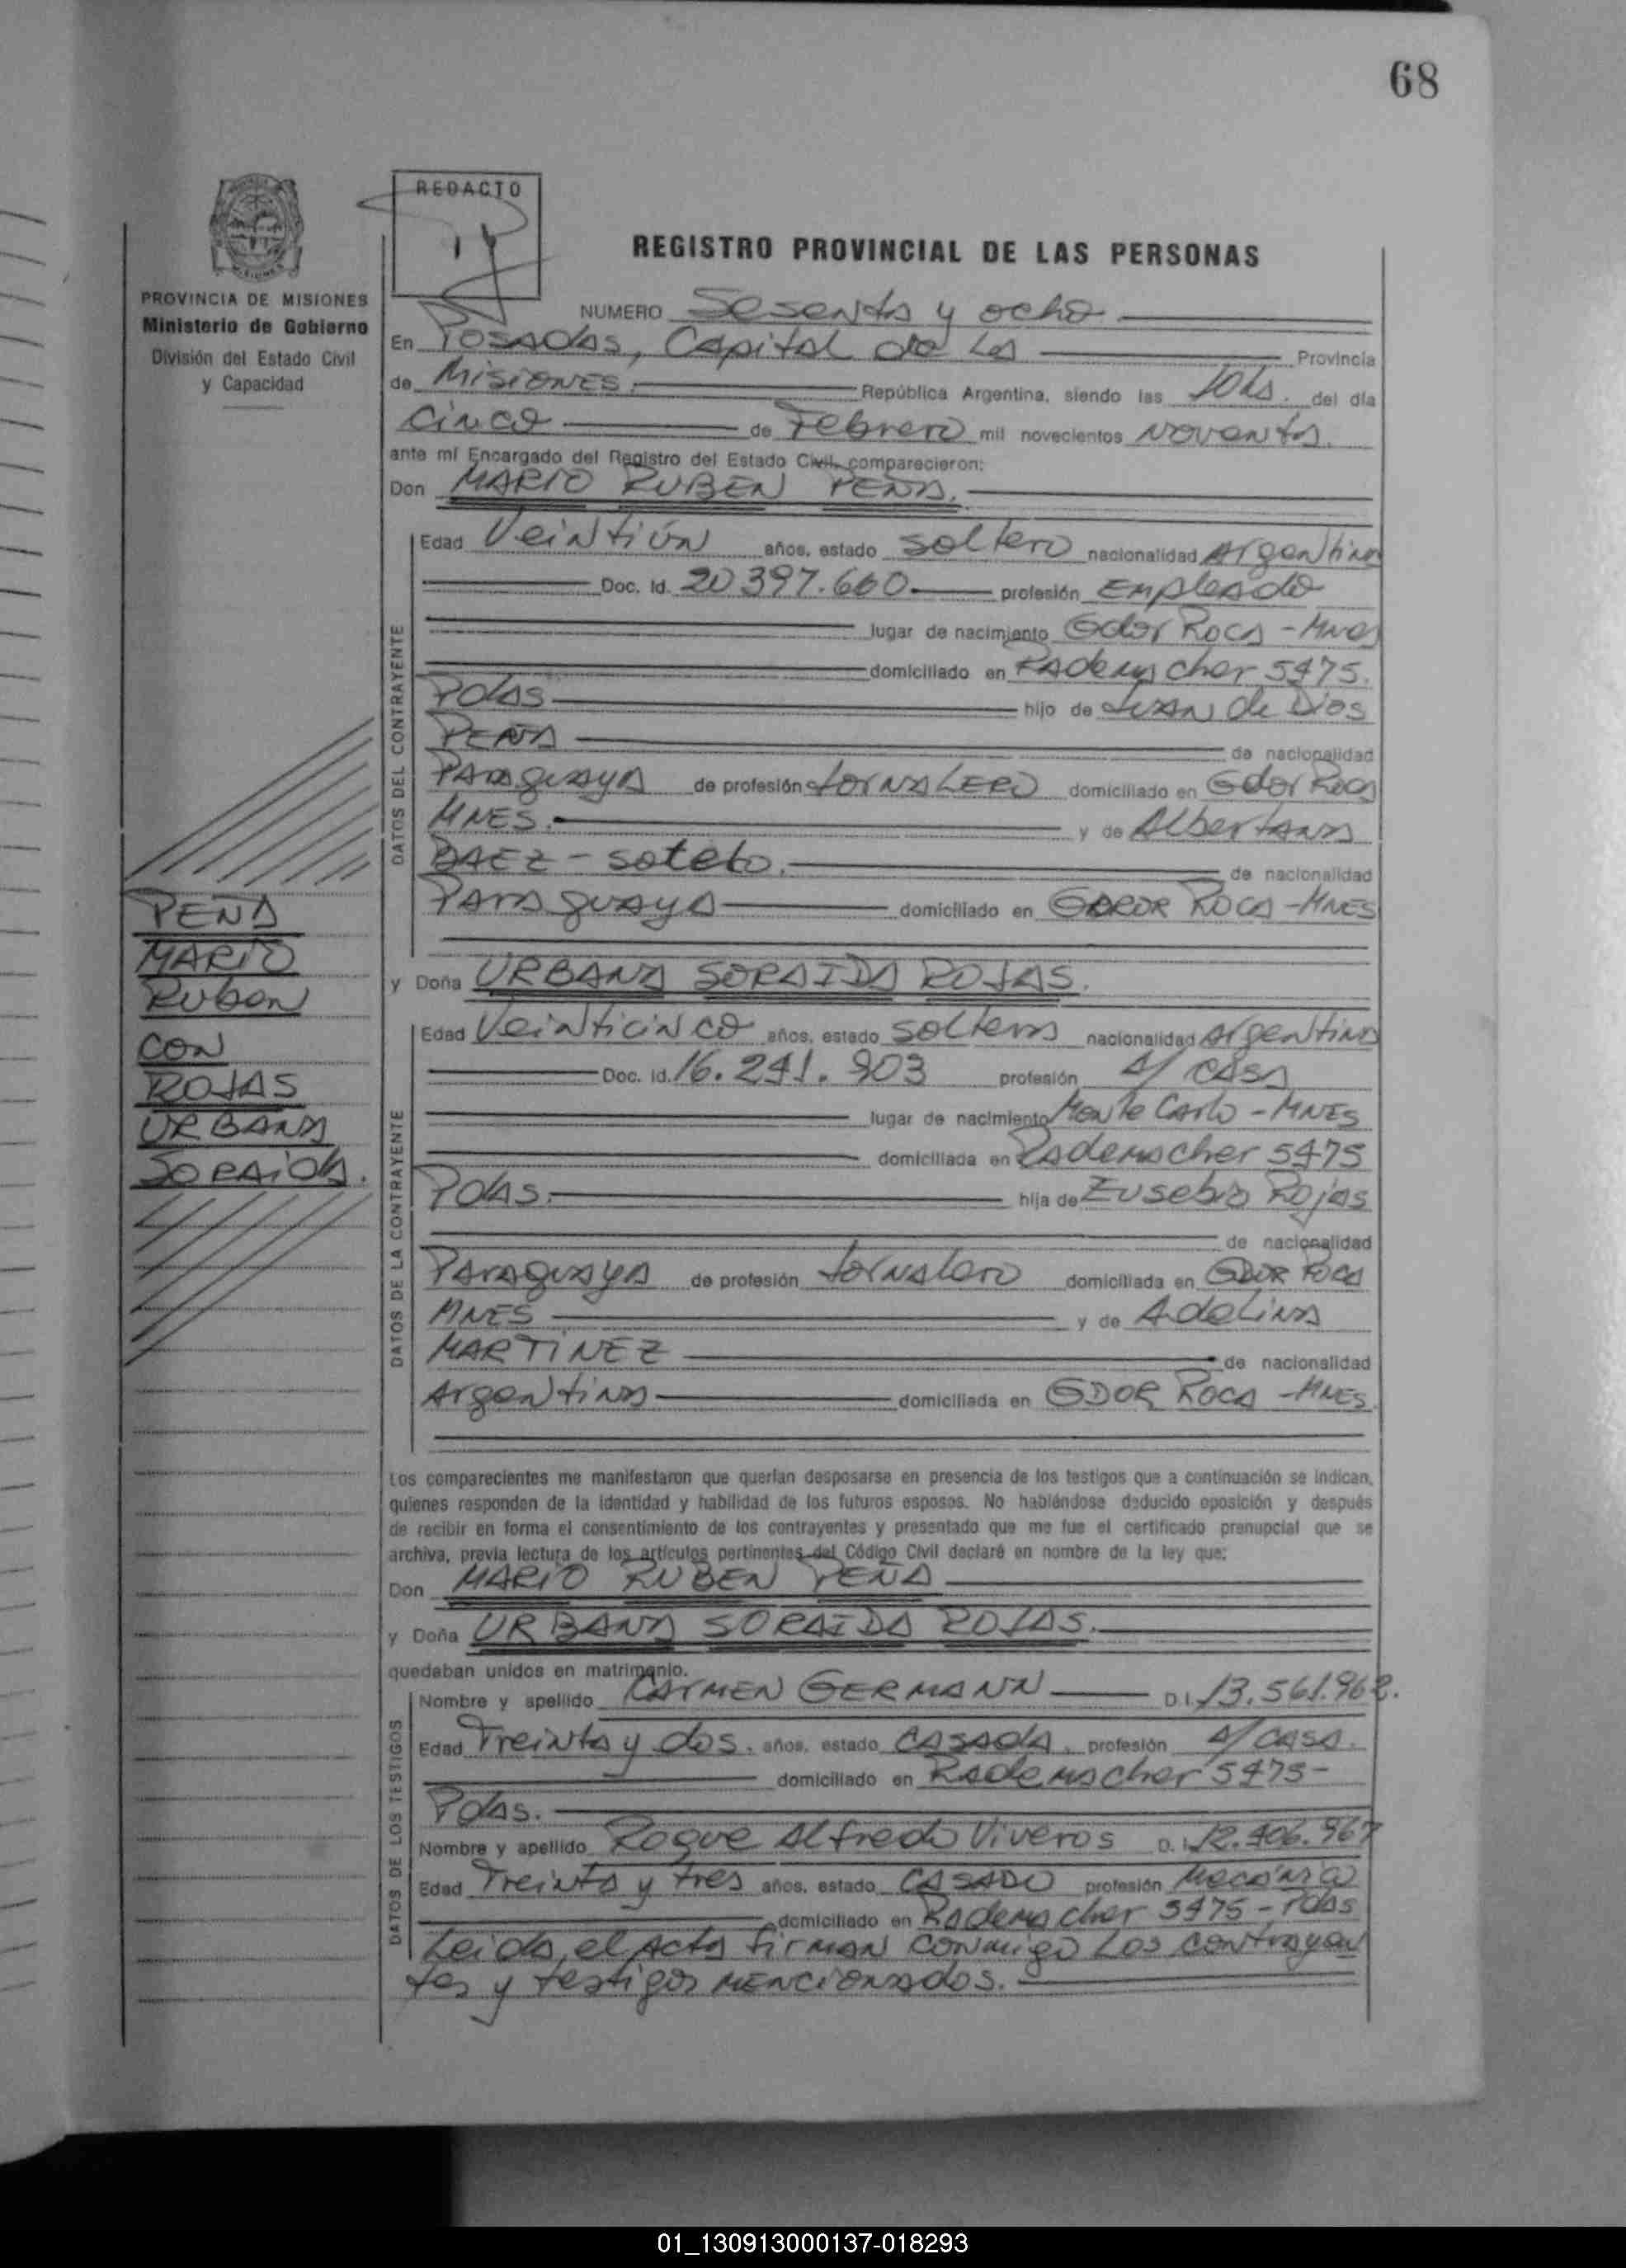 68
REDACTO
REGISTRO PROVINCIAL DE LAS PERSONAS
PROVINCIA DE MISIONES
Ministerio de Gobierno
División del Estado Civil
y Capacidad
NUMERO Sesenta y ocho
En Posadas, Capital de la Provincia
de Misiones. República Argentina, siendo las 10hs. del día
Cinco de Febrero mil novecientos noventa.
ante mí Encargado del Registro del Estado Civil, comparecieron:
Don MARIO RUBEN PEÑA.
DATOS DEL CONTRAYENTE
Edad Veintiún años, estado soltero nacionalidad Argentina
Doc. Id. 20 397.660 profesión Empleado
lugar de nacimiento Gdor Roca - Mnes
domiciliado en Rademacher 5475.
Pdas hijo de Juan de Dios
PEÑA de nacionalidad
Paraguaya de profesión Jornalero domiciliado en Gdor Roca
MNES. y de Albertana
BAEZ - Sotelo. de nacionalidad
Paraguaya domiciliado en GDOR ROCA - MNES
PEÑA
MARIO
Ruben
CON
ROJAS
URBANA
SORAIDA.
y Doña URBANA SORAIDA ROJAS.
DATOS DE LA CONTRAYENTE
Edad Veinticinco años, estado soltera nacionalidad Argentina
Doc. Id. 16.241.903 profesión s/ CASA
lugar de nacimiento Monte Carlo - MNES
domiciliada en Rademacher 5475
Pdas. hija de Eusebio Rojas
de nacionalidad
Paraguaya de profesión Jornalero domiciliada en GDOR Roca
MNES y de Adelina
MARTINEZ de nacionalidad
Argentina domiciliada en GDOR ROCA - MNES.
Los comparecientes me manifestaron que querían desposarse en presencia de los testigos que a continuación se indican,
quienes responden de la identidad y habilidad de los futuros esposos. No habiéndose deducido oposición y después
de recibir en forma el consentimiento de los contrayentes y presentado que me fue el certificado prenupcial que se
archiva, previa lectura de los artículos pertinentes del Código Civil declaré en nombre de la ley que:
Don MARIO RUBEN PEÑA
y Doña URBANA SORAIDA ROJAS.
quedaban unidos en matrimonio.
DATOS DE LOS TESTIGOS
Nombre y apellido CARMEN GERMANN D.I. 13.561.962.
Edad Treinta y dos. años, estado CASADA. profesión s/ CASA.
domiciliado en Rademacher 5475-
Pdas.
Nombre y apellido Roque Alfredo Viveros D.I. 12.406.967
Edad Treinta y tres años, estado CASADO profesión Mecánico
domiciliado en Rademacher 5475 - Pdas
Leida, el Acta firman conmigo los contrayen
tes y testigos mencionados.
01_130913000137-018293